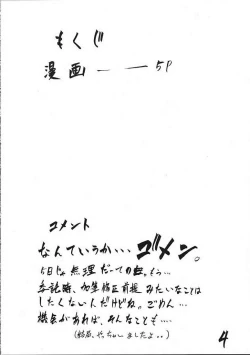 もくじ
漫画 ―― 5P
コメント
なんていうか…ゴメン。
5日じゃ無理だってのに。もぅ…
委託時、加筆修正前提みたいなことは
したくないんだけどね。ごめん…
機会があれば、そんなことも…
(結局、やっちゃいましたよ..)
4